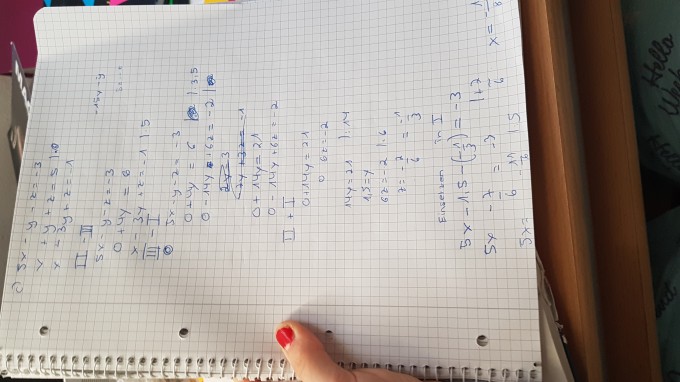 c) 5x - y - z = -3
x + y + z = 5
x - 3y + z = -1
II - III
5x - y - z = -3
0 + 4y = 6
x - 3y + z = -1 | 5
III - I
5x - y - z = -3
0 + 4y = 6 | 3,5
0 - 14y + 6z = -2
0 + 14y = 21
0 - 14y + 6z = -2
II + I
0 + 14y = 21
0 6z = -2
14y = 21 | :14
1,5 = y
6z = -2 | :6
z = -2/6 = -1/3
Einsetzen in I
5x - 1,5 - (-1/3) = -3
5x - 7/6 = -3 | + 7/6
5x = -11/6 | 5
Hello